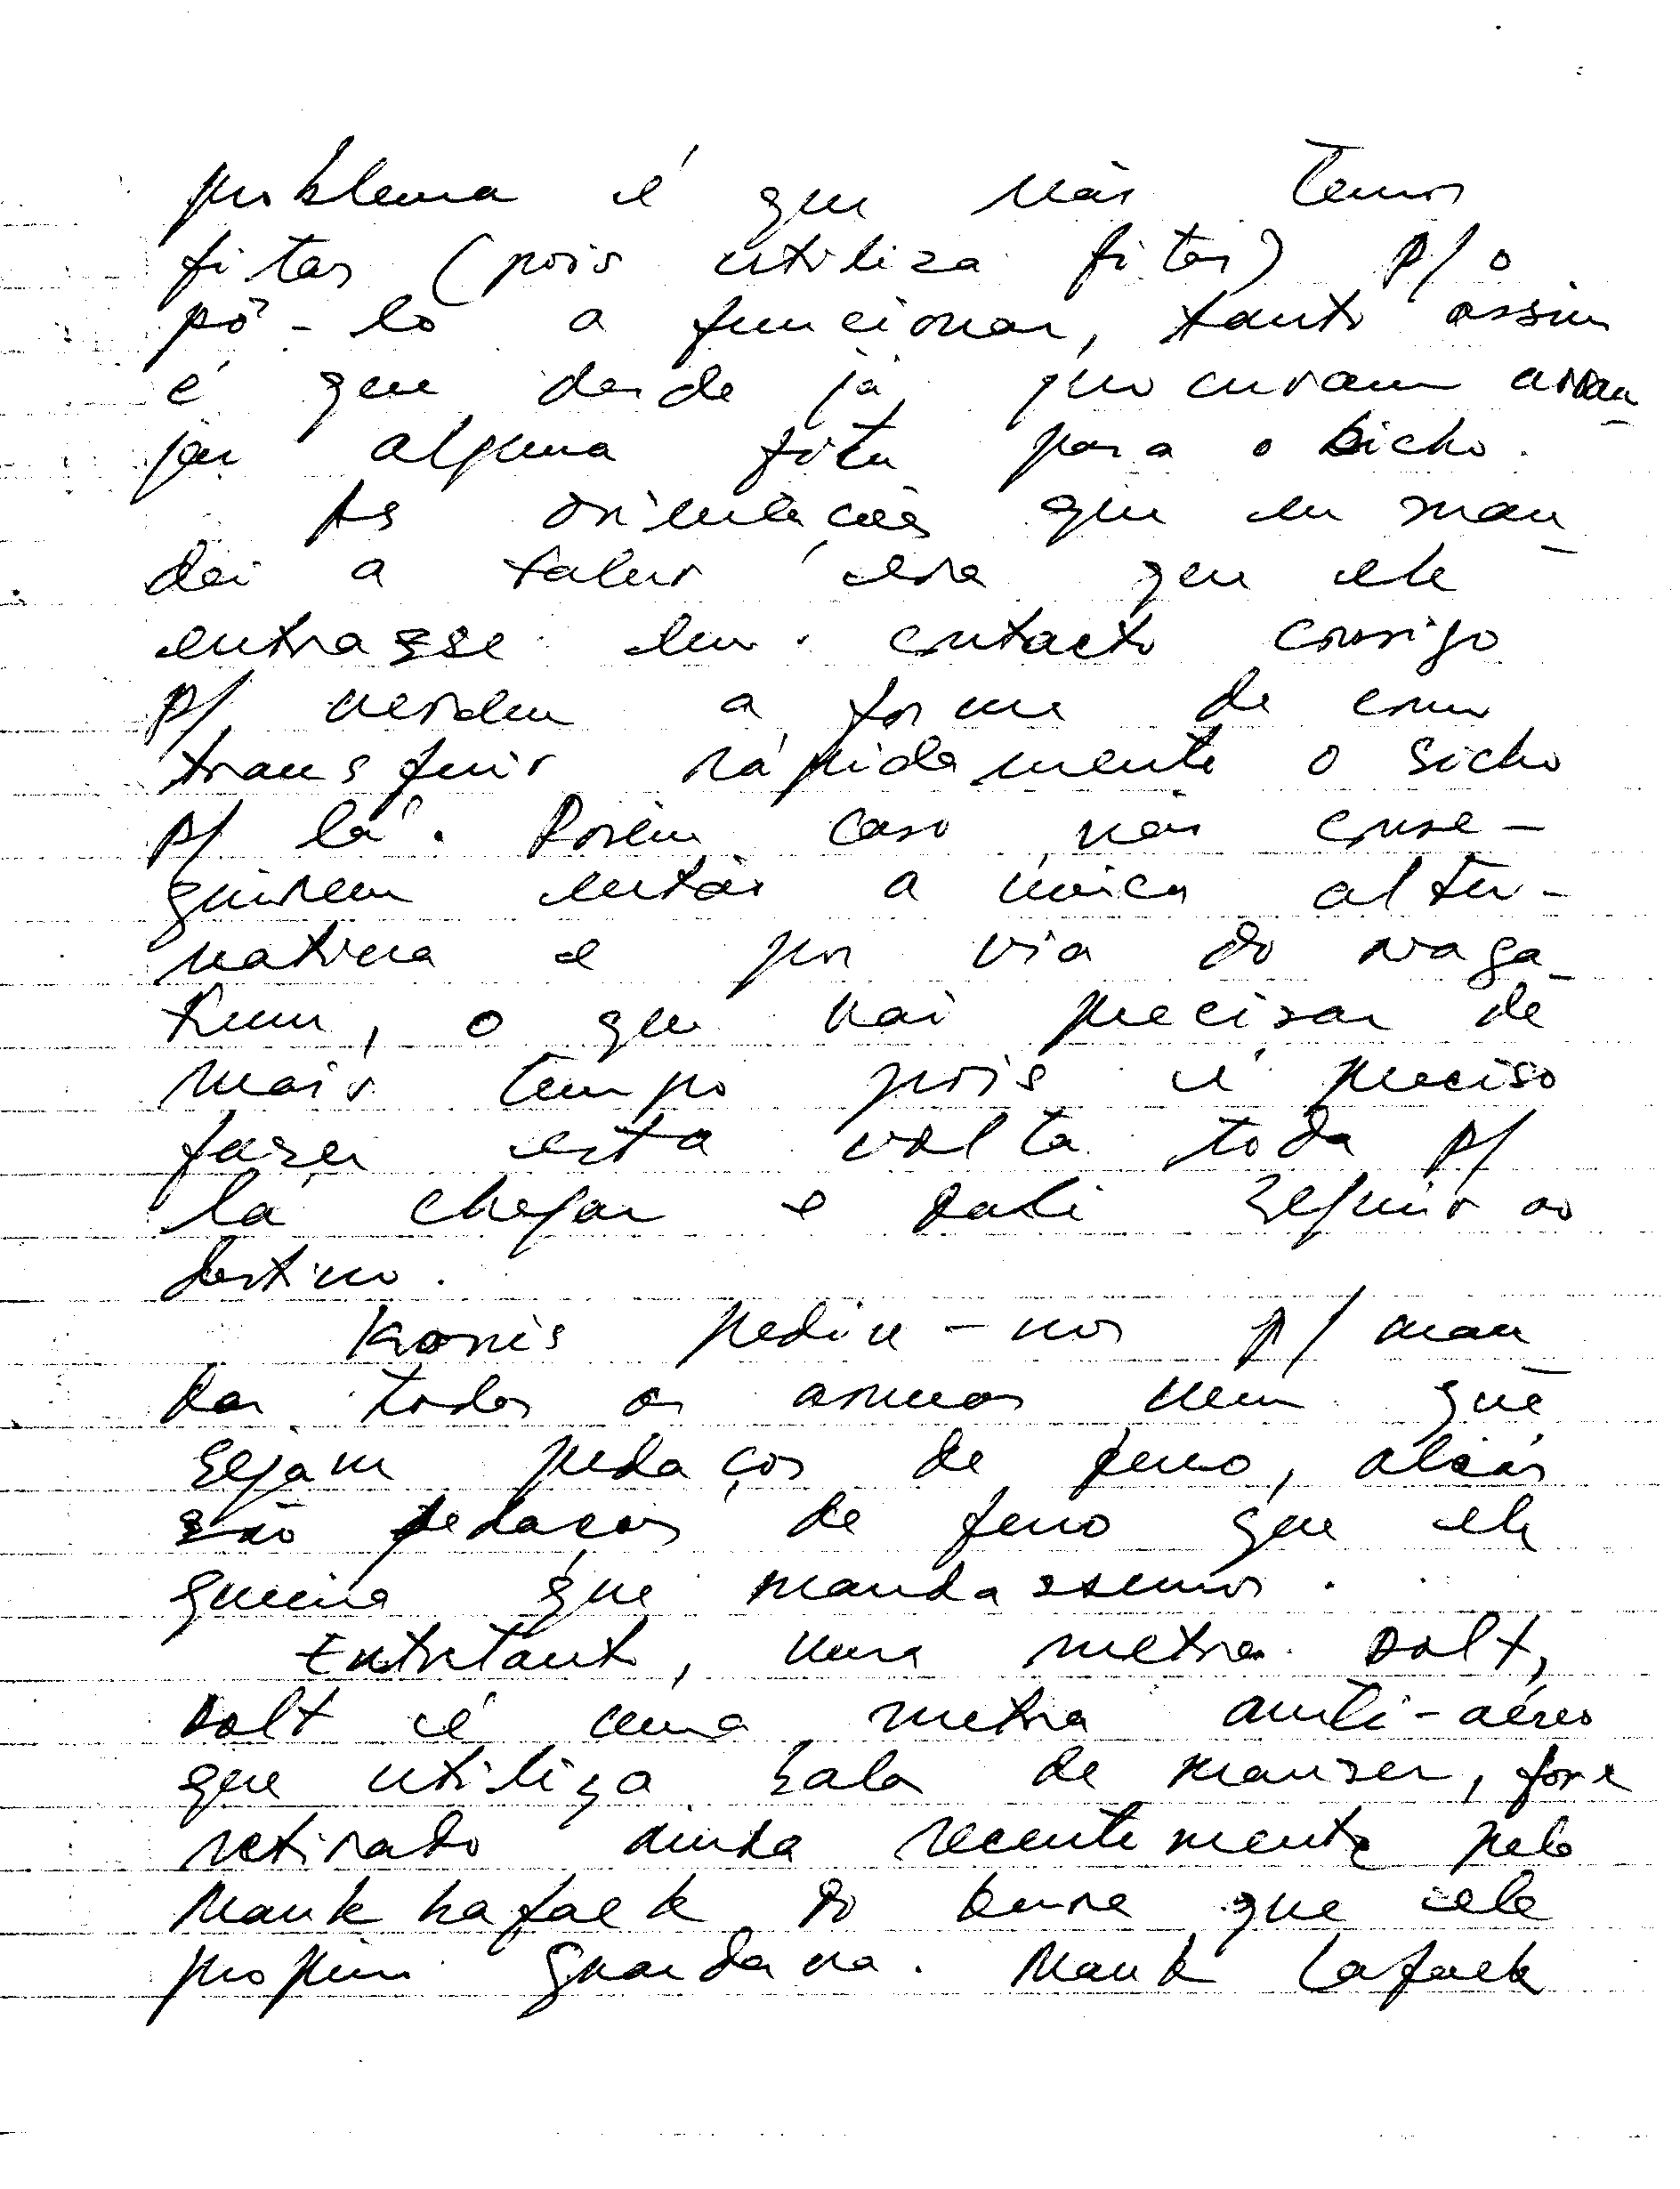 problema é que não temos
fitas (pois utiliza fitas) p/ o
pô-lo a funcionar, tanto assim
é que desde já procuram arran_
jar alguma fita para o bicho.
As orientações que eu man_
dei a Falur era que ele
entrasse em contacto consigo
p/ verem a forma de como
transferir rápidamente o bicho
p/ lá. Porém caso não conse-
guirem então a única alter-
nativa é por via do
o que vai precisar de
mais tempo pois é preciso
fazer esta volta toda p/
lá chegar e dali seguir ao
destino.
Konis pediu-nos p/ man_
dar todos os armas nem que
sejam pedaços de ferro, aliás
são pedaços de ferro que ele
queria que mandassemos.
Entretanto, uma metra Dalt,
Dalt é uma metra anti-aéreo
que utiliza bala de mauser, fora
retirado ainda recentemente pelo
Mauk Lafaek do que ele
proprio guardava. Mauk Lafaek